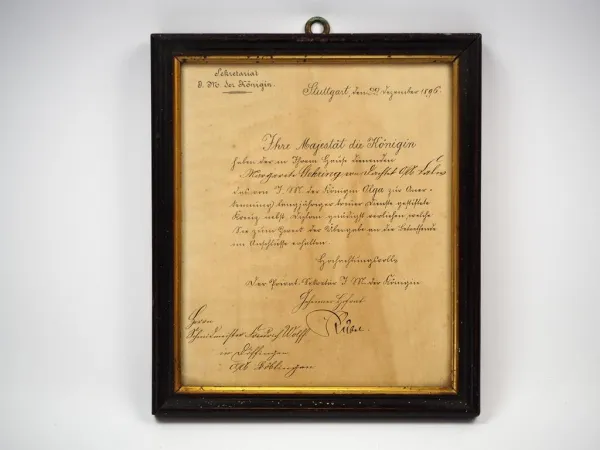 Sekretariat
I. M. der Königin.
Stuttgart, den 22. Dezember 1896.
Ihre Majestät die Königin
haben der in Ihrem Hause dienenden
Margarete Gehring von Dachtel OA.
das von I. M. der Königin Olga zur Aner-
kennung langjähriger treuer Dienste gestiftete
Kreuz nebst Diplom gnädigst verliehen, welche
Sie zum Zweck der Übergabe an die Betreffende
im Anschlusse erhalten.
Hochachtungsvollst
Der Privat-Sekretär I. M. der Königin
Geheimer Hofrat
Herrn
Schmidmeister Heinrich Wolff
in Döffingen
OA. Böblingen